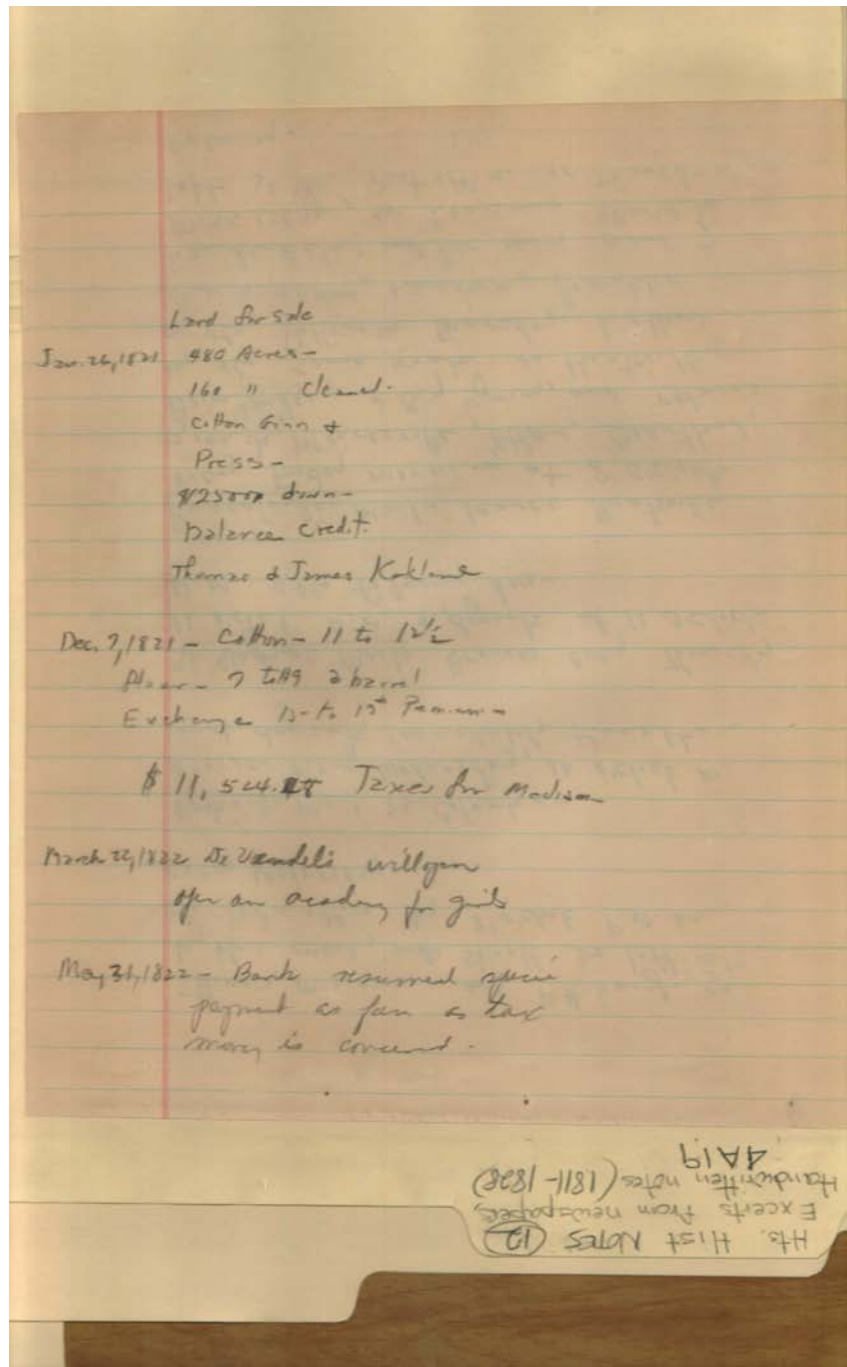 Land for sale
Jan. 26, 1821 480 Acres-
160 " Cleared.
Cotton Ginn &
Press-
down-
balance credit.
Thomas & James
Dec. 7, 1821 - Cotton - 11 to 12½
Flour - 7 to $9 a barrel
Exchange to
$ 11, 524. Taxes for Madison
March 22, 1822 will open
open an academy for girls
May 31, 1822 - Bank resumed specie
payment as far as tax
money is concerned.
Hts. Hist NOTES (12)
Excerts from newspapers,
Handwritten notes (1811-1828)
4A19